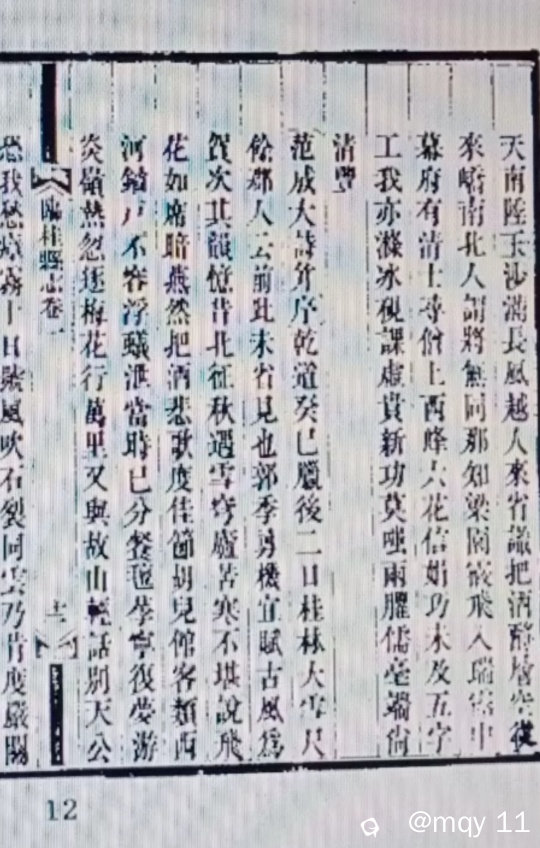 天南陸玉沙滿長風越人來省識把酒酹層空從
來嶠南北人謂將無同那知梁園霰飛入瑞雲中
幕府有清士尋僧上西峰六花信娟巧未及五字
工我亦滌冰硯課虛責新功莫嗤雨臞儒毫端尚
清豐
范成大詩并序乾道癸巳臘後二日桂林大雪尺
餘郡人云前此未省見也郭季勇機宜賦古風為
賀次其韻憶昔北征秋遇雪穹廬苦寒不堪說飛
花如席暗燕然把酒悲歌度佳節胡兒館客類西
河鎖戶不容浮蟻泄當時已分餐氊 寧復夢游
炎嶺熱忽逐梅花行萬里又與故山輕話別天公
臨桂縣志卷一
十二
愁我愁瘴霧十日號風吹石裂同雲乃肯度嚴關
12
@mqy 11